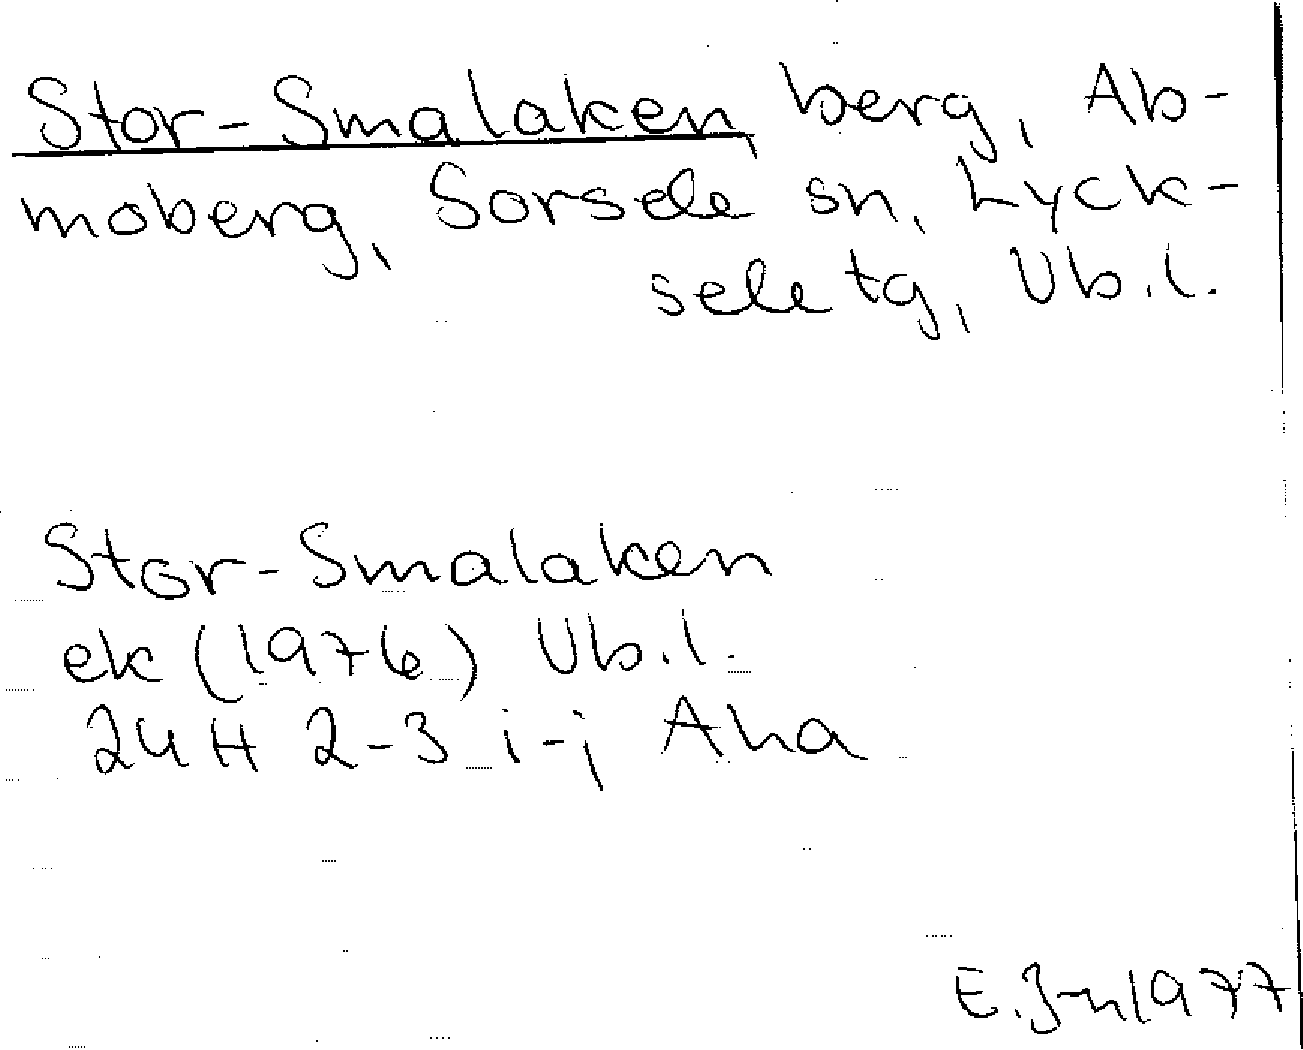 Stor-Smalaken, berg, Ab-
moberg, Sorsele sn, Lyck-
sele tg, Vb.l.
Stor-Smalaken
ek (1976) Vb.l.
24H 2-3 i-j Aha
E. J-n 1977